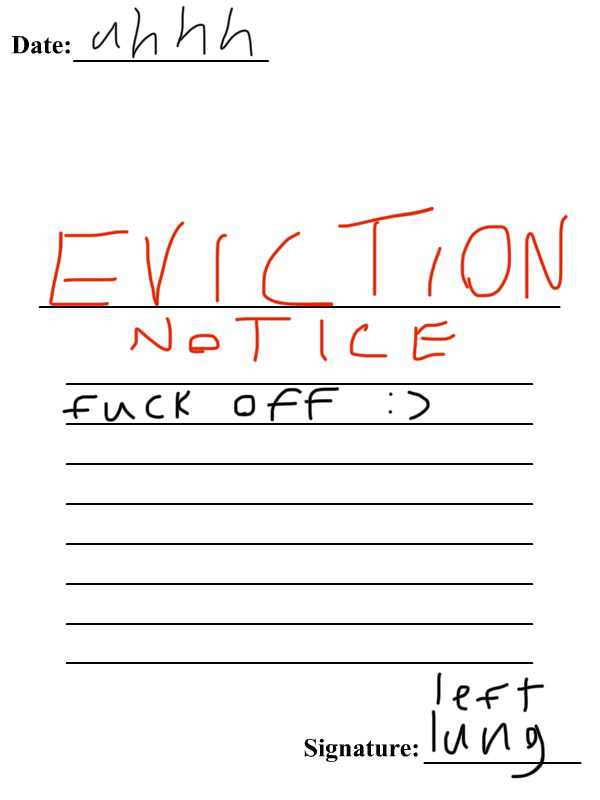 Date: uhhh
EVICTION
NOTICE
fuck off :)
left
Signature: lung